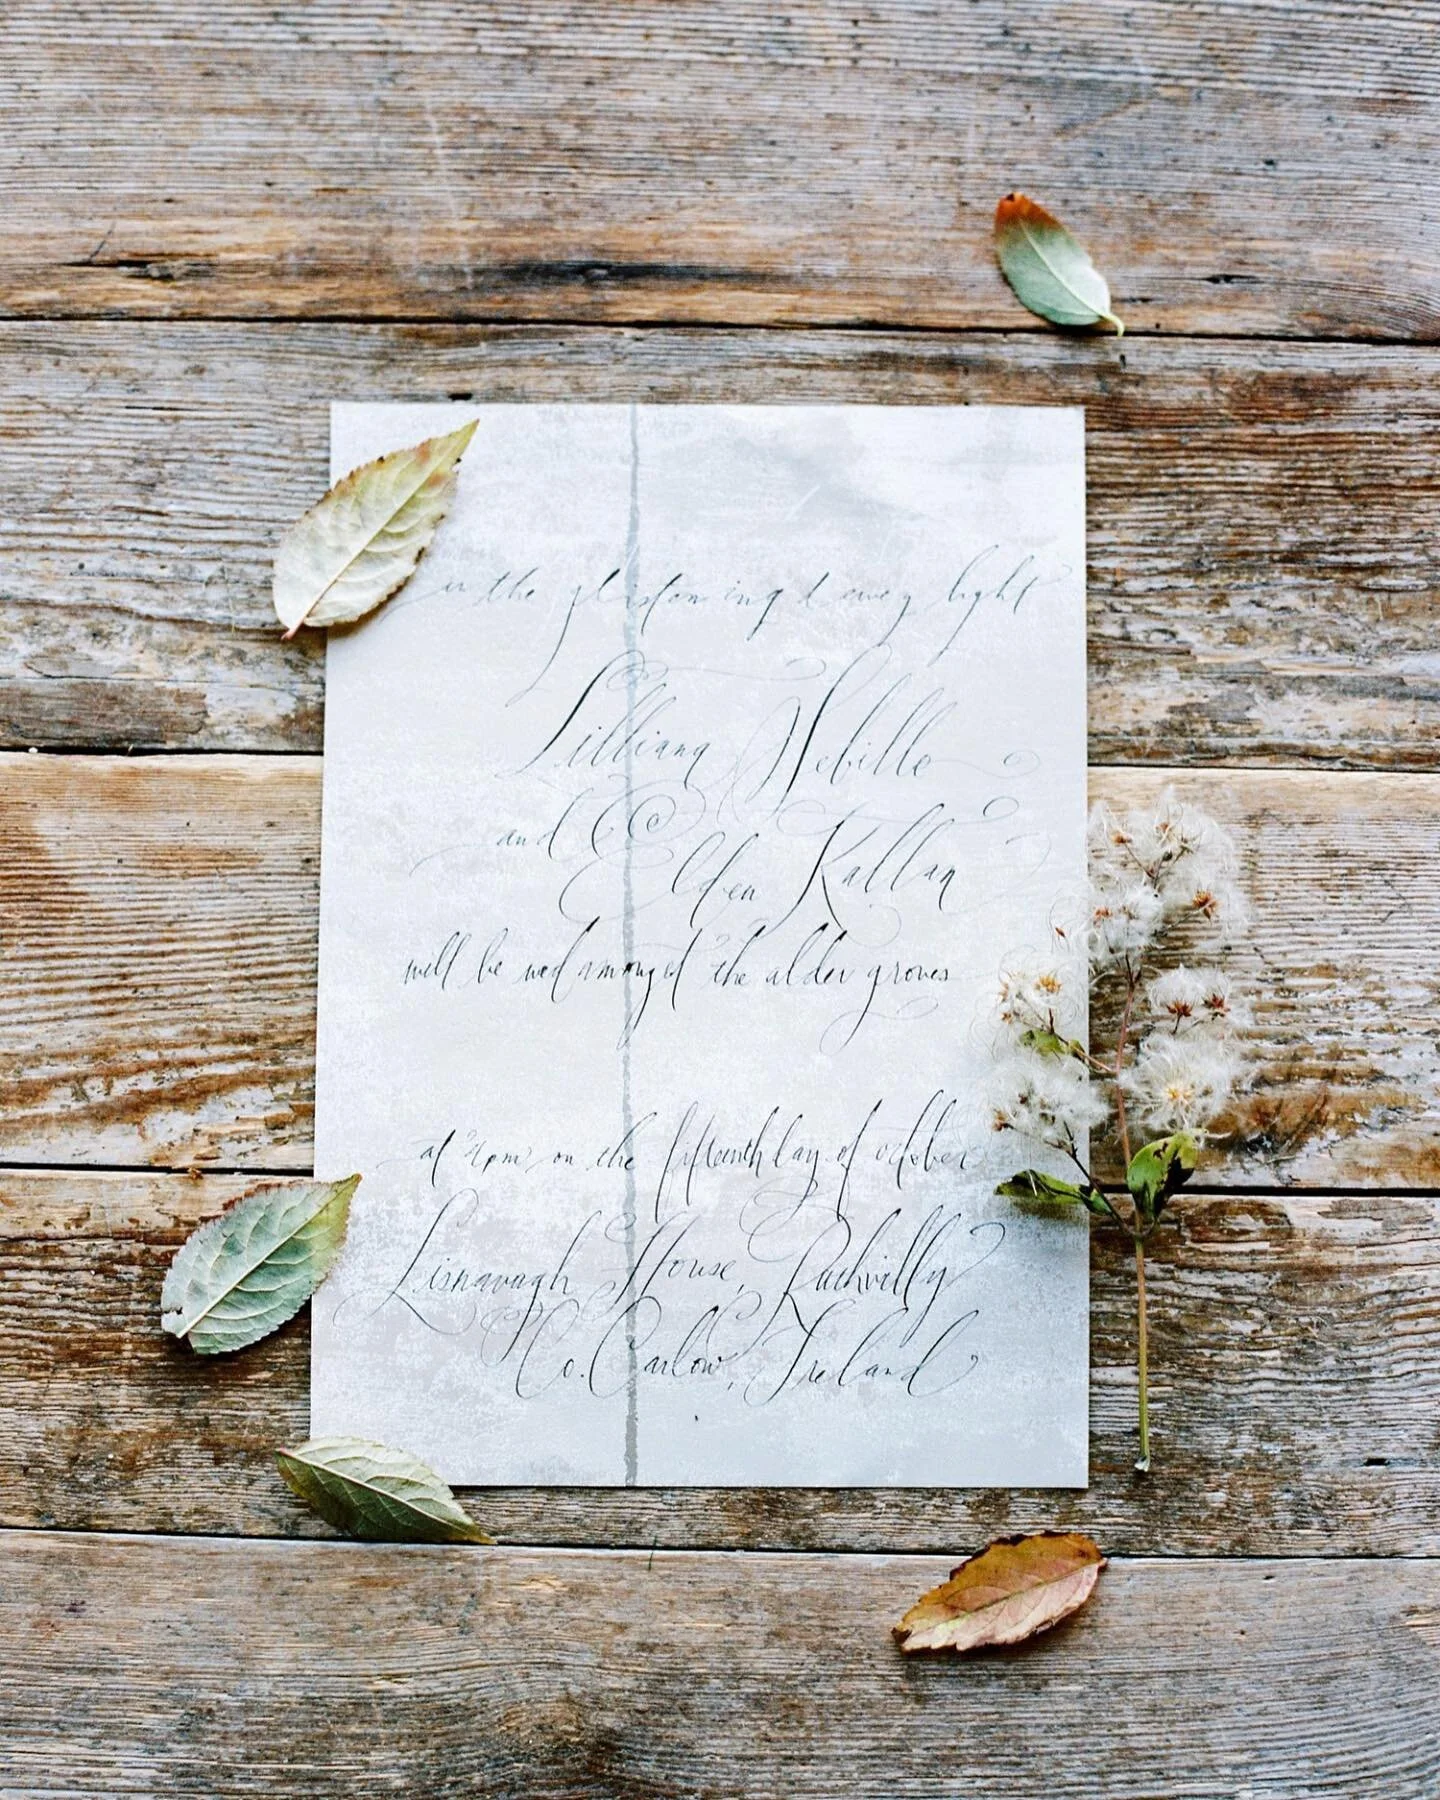 in the glistening dewey light
Lilliana Nebille
and
Elden Kallan
will be wed amongst the alder groves
at 4pm on the fifteenth day of october
Lisnavagh House, Rathvilly
Co. Carlow, Ireland